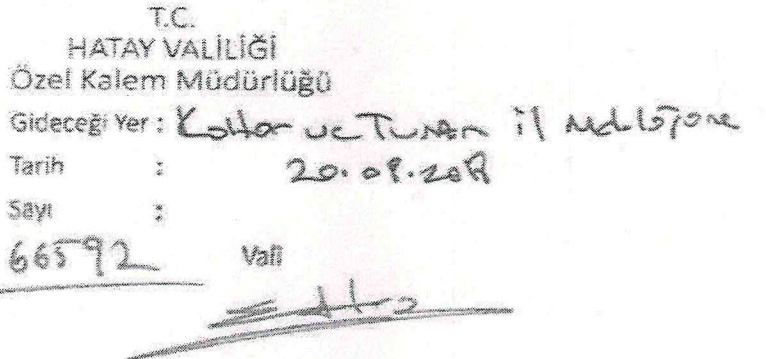 T.C.
HATAY VALİLİĞİ
Özel Kalem Müdürlüğü
Gideceği Yer : Kültür ve Turizm il Müdürlüğüne
Tarih :
Sayı :
66592 Vali